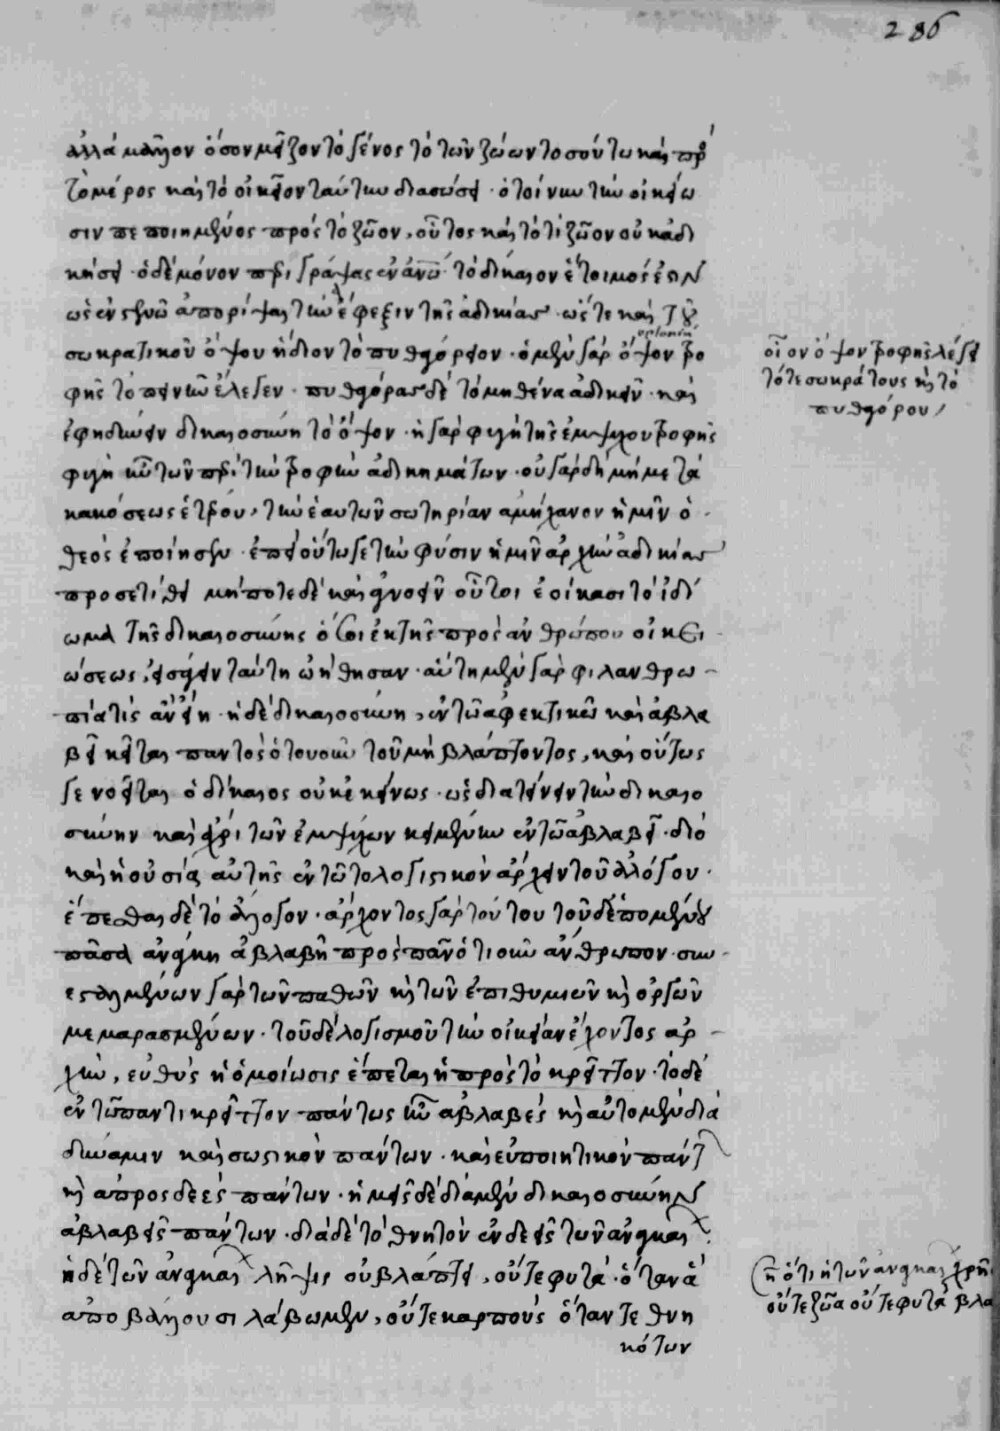 286
ἀλλὰ μᾶλλον ὅσον μεῖζον τὸ γένος τὸ τῶν ζώων τοσούτω καὶ πρ
τὸ μέρος καὶ τὸ οἰκεῖον ταύτην διασώσει · ὁ τοίνυν τὴν οἰκείω
σιν πεποιημένος πρὸς τὸ ζῶον, οὗτος καὶ τὸ τὶ ζῶον οὐκ ἀδι
κήσει · ὁ δὲ μόνον περιγράψας ἐν ἀνω τὸ δίκαιον ἕτοιμός ἐστιν
ὡς ἐν στενῶ ἀπορίψαι τὴν ἐφεξιν τῆς ἀδικίας · ὥστε καὶ τοῦ
σωκρατικοῦ ὄψου ἥδιον τὸ πυθαγόρειον · ὁ μὲν γὰρ ὄψον τρο
φῆς τὸ πεινῶ ἔλεγεν · πυθαγόρας δὲ τὸ μηθένα ἀδικεῖν · καὶ
ἐφηδύνειν δικαιοσύνη τὸ ὄψον · ἡ γὰρ φυγὴ τῆς ἐμψύχου τροφῆς
φυγὴ ἦν τῶν περὶ τὴν τροφὴν ἀδικημάτων · οὐ γὰρ δὴ μὴ μετὰ
κακώσεως ἑτέρου, τὴν ἑαυτῶν σωτηρίαν ἀμήχανον ἡμῖν ὁ
θεὸς ἐποίησεν · ἐπεὶ οὕτω γε τὴν φύσιν ἡμῖν ἀρχὴν ἀδικίας
προσετίθει μήποτε δὲ καὶ ἀγνοεῖν οὗτοι ἐοίκασι τὸ ἰδί
ωμα τῆς δικαιοσύνης ὅσοι ἐκ τῆς πρὸς ἀνθρώπου οἰκει
ώσεως, εἰσάγειν ταύτη ὠήθησαν · αὕτη μὲν γὰρ φιλανθρω
πία τὶς ἂν εἴη · ἡ δὲ δικαιοσύνη, ἐν τῶ ἀφεκτικῶ καὶ ἀβλα
βεῖ κεῖται παντὸς ὁτουοῦν τοῦ μὴ βλάπτοντος, καὶ οὕτως
γε νοεῖται ὁ δίκαιος οὐκ ἐκείνως · ὡς διατείνειν τὴν δικαιο
σύνην καὶ ἄχρι τῶν ἐμψύχων κειμένην ἐν τῶ ἀβλαβεῖ · διὸ
καὶ ἡ οὐσία αὐτῆς ἐν τῶ τὸ λογιστικὸν ἄρχειν τοῦ ἀλόγου ·
ἕπεσθαι δὲ τὸ ἄλογον · ἄρχοντος γὰρ τούτου τοῦ δὲ ἑπομένου
πᾶσα ἀνάγκη ἀβλαβῆ πρὸς πᾶν ὁτιοῦν ἄνθρωπον · συν
εσταλμένων γὰρ τῶν παθῶν καὶ τῶν ἐπιθυμιῶν καὶ ὀργῶν
μεμαρασμένων · τοῦ δὲ λογισμοῦ τὴν οἰκείαν ἔχοντος ἀρ
χήν, εὐθὺς ἡ ὁμοίωσις ἕπεται ἡ πρὸς τὸ κρεῖττον · τὸ δὲ
ἐν τῶ παντὶ κρεῖττον πάντως ἦν ἀβλαβὲς καὶ αὐτὸ μὲν διὰ
δύναμιν καὶ σωστικὸν πάντων · καὶ εὐποιητικὸν πάντων
καὶ ἀπροσδεὲς πάντων · ἡμεῖς δὲ διὰ μὲν δικαιοσύνην
ἀβλαβεῖς πάντων · διὰ δὲ τὸ θνητὸν ἐνδεεῖς τῶν ἀναγκαίων
ἡ δὲ τῶν ἀναγκαίων λῆψις οὐ βλάπτει, οὔτε φυτὰ · ὅταν ἃ
ἀποβάλλουσι λάβωμεν, οὔτε καρποὺς ὅταν τεθνη
κότων
οἷον ὄψον τροφῆς λέγει
τό τε σωκράτους καὶ τὸ
πυθαγόρου
ὅτι ἡ τῶν ἀναγκαίων χρῆ
οὔτε ζῶα οὔτε φυτὰ βλα